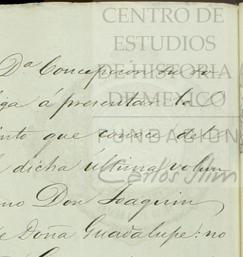 CENTRO DE
ESTUDIOS
DE HISTORIA
DE MEXICO
FUNDACIÓN
Carlos Slim
Da Concepcion se re
ga á presentar la
nto que conoce del
dicha última volun
no Don Joaquin
e Doña Guadalupe: no